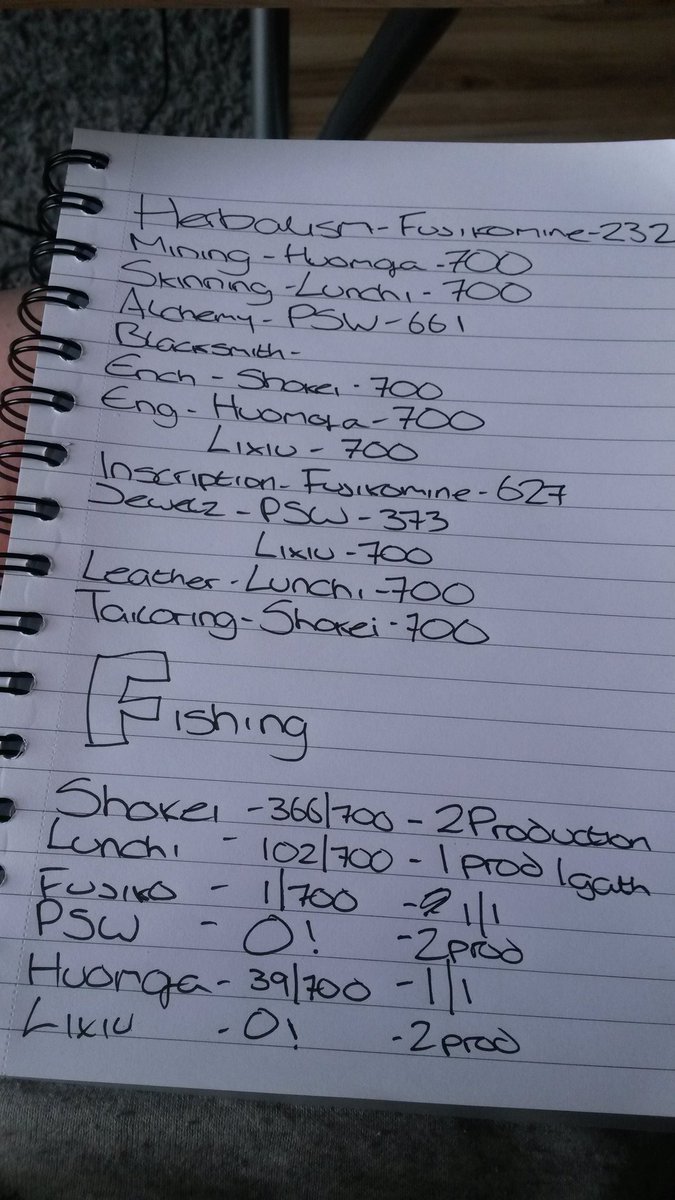 Herbalism - Fusikomine - 232
Mining - Huomga - 700
Skinning - Lunchi - 700
Alchemy - PSW - 661
Blacksmith -
Ench - Shokei - 700
Eng - Huomga - 700
Lixiu - 700
Inscription - Fusikomine - 627
Jewelz - PSW - 373
Lixiu - 700
Leather - Lunchi - 700
Tailoring - Shokei - 700
Fishing
Shokei - 366/700 - 2 Production
Lunchi - 102/700 - 1 prod 1 gath
Fusiko - 1/700 - 1/1
PSW - 0! - 2 prod
Huomga - 39/700 - 1/1
Lixiu - 0! - 2 prod